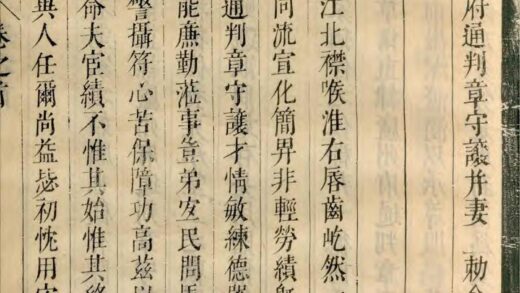 府通判章守讓并妻
江北襟喉淮右唇齒屹然
同流宣化簡畀非輕勞績
通判章守讓才情敏練德
能廉勤蒞事豈弟宜民間
警攝符心苦保障功高茲
命大官績不惟其始惟其
與人任爾尚益毖初忱用
卷之首